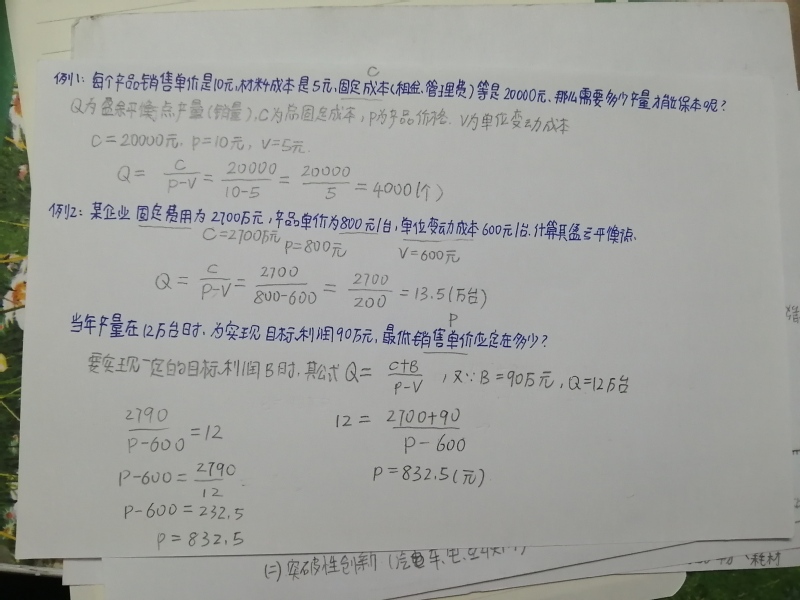 C
例1：每个产品销售单价是10元，材料成本是5元，固定成本（租金、管理费）等是20000元、那么需要多少产量才能保本呢？
Q为盈亏平衡点产量（销量），C为总固定成本，P为产品价格．V为单位变动成本
C=20000元，P=10元，V=5元．
Q= C/(P-V) = 20000/(10-5) = 20000/5 =4000(个)
例2：某企业固定费用为2700万元，产品单价为800元/台，单位变动成本600元/台．计算其盈亏平衡点．
C=2700万元 P=800元 V=600元
Q= C/(P-V) = 2700/(800-600) = 2700/200 =13.5(万台)
P
当年产量在12万台时．为实现目标利润90万元，最低销售单价应定在多少？
要实现一定的目标利润B时．其公式Q= (C+B)/(P-V)，又∵B=90万元，Q=12万台
2790/(P-600) =12
12= (2700+90)/(P-600)
P-600= 2790/12
P=832.5(元)
P-600=232.5
P=832.5
(二)突破性创新(汽车、电
耗材